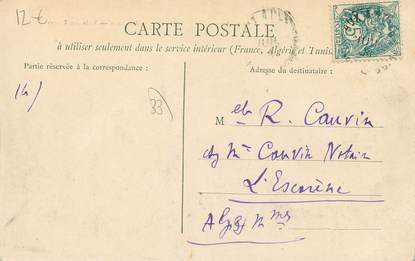 12 €
CARTE POSTALE
à utiliser seulement dans le service intérieur (France, Algérie et Tunisie)
Partie réservée à la correspondance :
Adresse du destinataire :
14)
33
Melle R. Cauvin
chez Me Cauvin Notaire
L'Escarène
Alpes Mmes